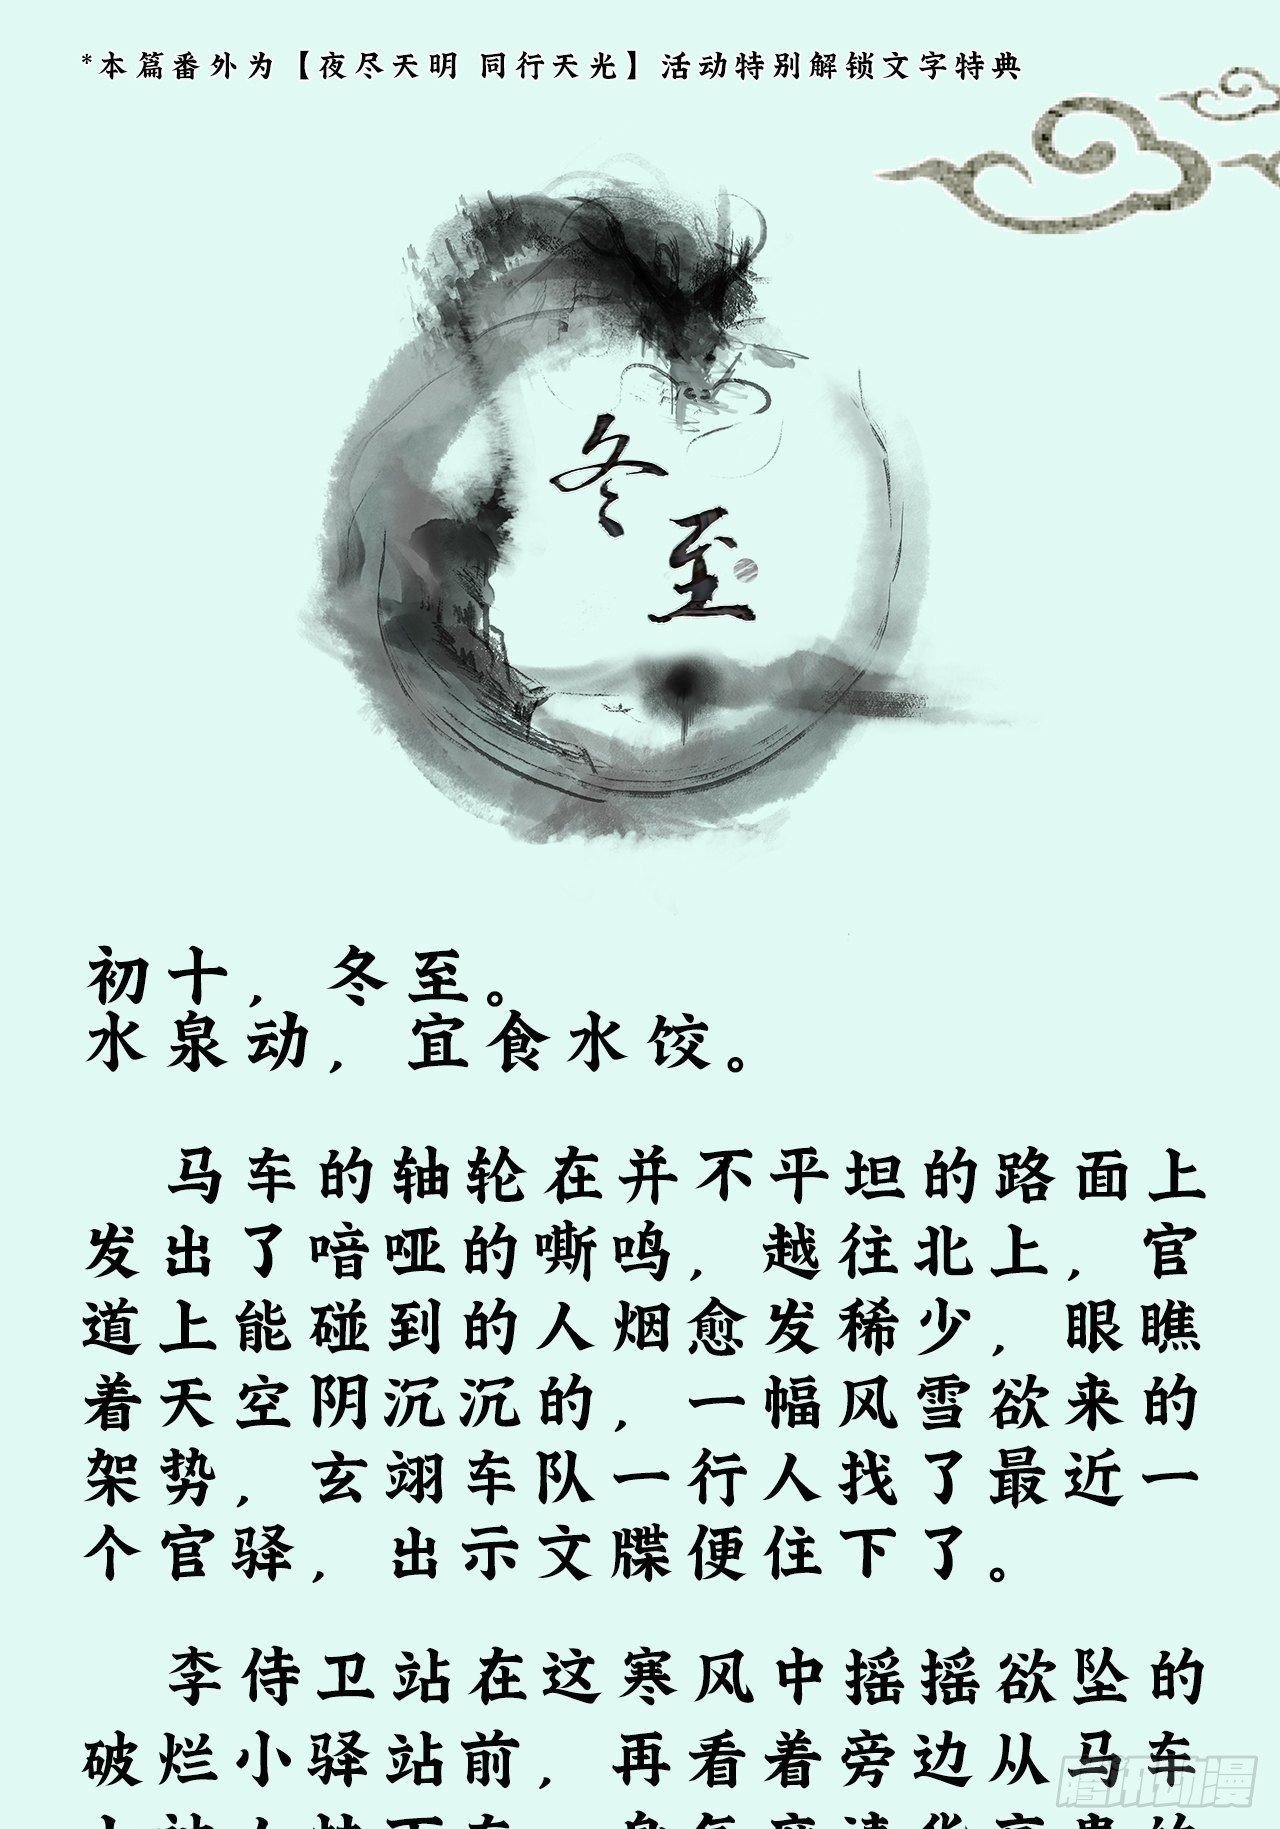 *本篇番外为【夜尽天明 同行天光】活动特别解锁文字特典
冬至
初十，冬至。
水泉动，宜食水饺。
马车的轴轮在并不平坦的路面上
发出了喑哑的嘶鸣，越往北上，官
道上能碰到的人烟愈发稀少，眼瞧
着天空阴沉沉的，一幅风雪欲来的
架势，玄翊车队一行人找了最近一
个官驿，出示文牒便住下了。
李侍卫站在这寒风中摇摇欲坠的
破烂小驿站前，再看着旁边从马车
腾讯动漫